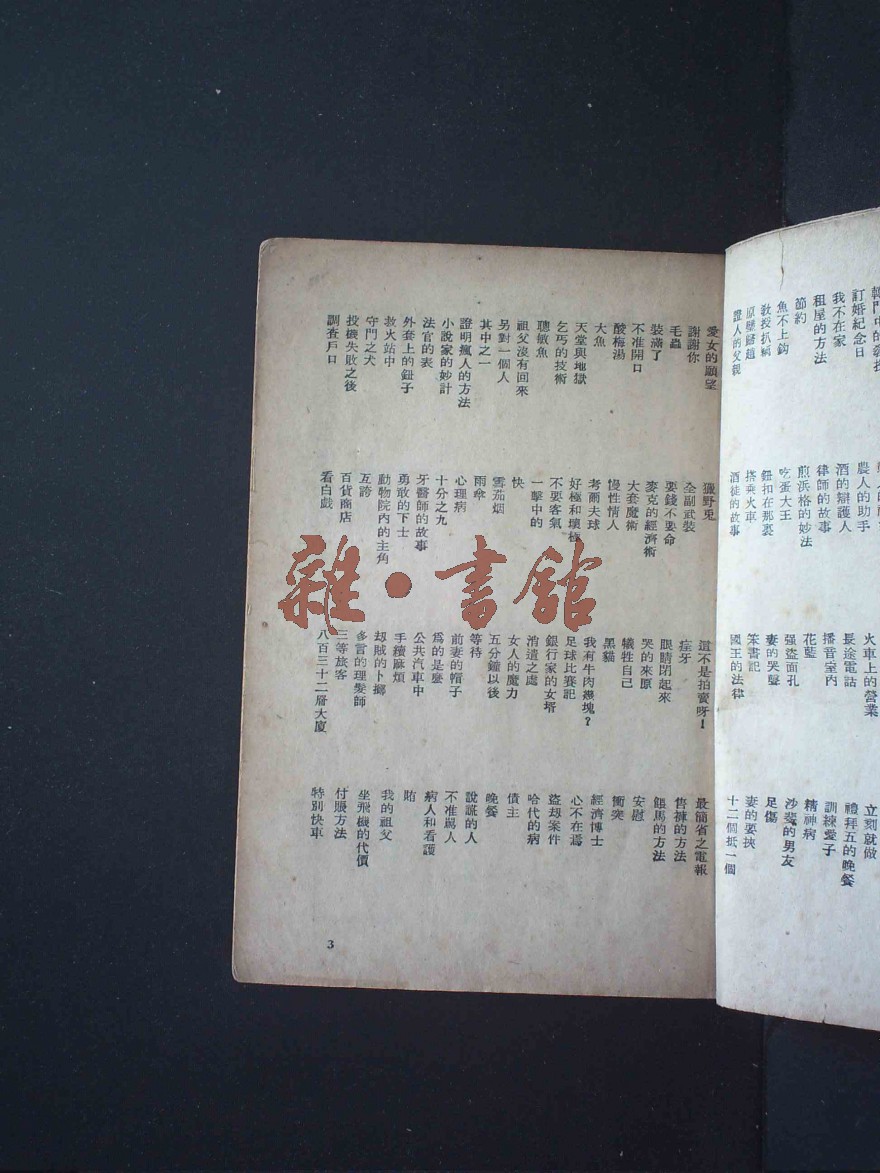 訂婚紀念日
我不在家
租屋的方法
節約
魚不上鈎
教授扒癩
原璧歸趙
證人的父親
農人的助手
酒的辯護人
律師的故事
煎浜格的妙法
吃蛋大王
鈕扣在那裏
搭乘火車
酒徒的故事
火車上的營業
長途電話
播音室內
花籃
强盜面孔
妻的哭聲
笨書記
國王的法律
立刻就做
禮拜五的晚餐
訓練愛子
精神病
沙斐的男友
足傷
妻的要挾
十二個抵一個
愛女的願望
謝謝你
毛蟲
裝滿了
不准開口
酸梅湯
大魚
天堂與地獄
乞丐的技術
聰敏魚
祖父沒有回來
另對一個人
其中之一
證明瘋人的方法
小說家的妙計
法官的表
外套上的鈕子
救火站中
守門之犬
投機失敗之後
調查戶口
獵野兎
全副武裝
要錢不要命
麥克的經濟術
大套魔術
慢性情人
考爾夫球
好極和壞極
不要客氣
一擊中的
快
雪茄烟
雨傘
心理病
十分之九
牙醫師的故事
勇敢的下士
動物院內的主角
互誇
百貨商店
看白戲
還不是拍賣呀!
痓牙
眼睛閉起來
哭的來原
犧牲自己
黑貓
我有牛肉幾塊?
足球比賽記
銀行家的女壻
消遣之處
女人的魔力
五分鐘以後
等待
前妻的帽子
爲的是塵
公共汽車中
手續麻煩
却賊的卜擲
多言的理髮師
三等旅客
八百三十二層大廈
最簡省之電報
售褲的方法
餵馬的方法
安慰
衝突
經濟博士
心不在焉
盜却案件
哈代的病
債主
晚餐
說謊的人
不准罵人
病人和看護
賄
我的祖父
坐飛機的代價
付賬方法
特別快車
3
雜·書舘